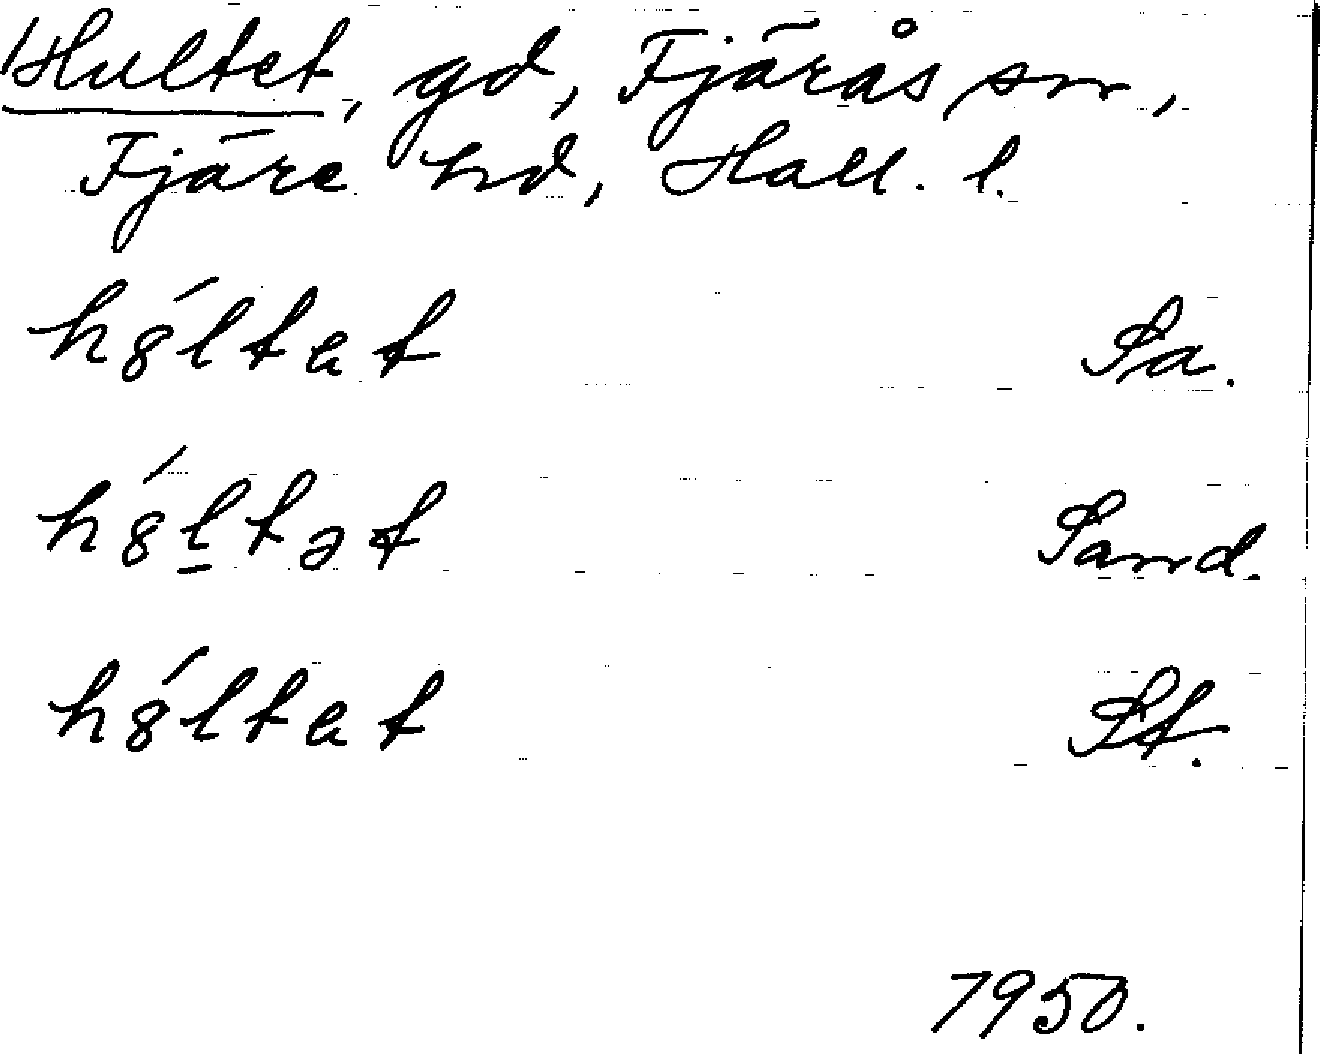 Hultet, gd, Fjärås sn,
Fjäre hd, Hall. l.
hȣ́ltat Sa.
hȣ́l̲tət Sand.
hȣ́ltat St.
1950.